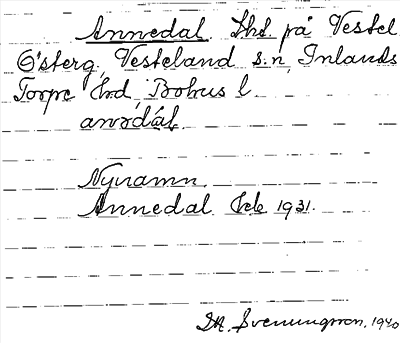 Annedal. Lht. på Vestel
Österg, Vesteland s.n, Inlands
Torpe Hrd, Bohus l
anədáɫ.
Nyuamn.
Annedal Jeb 1931.
DA. Svenungsson. 1940